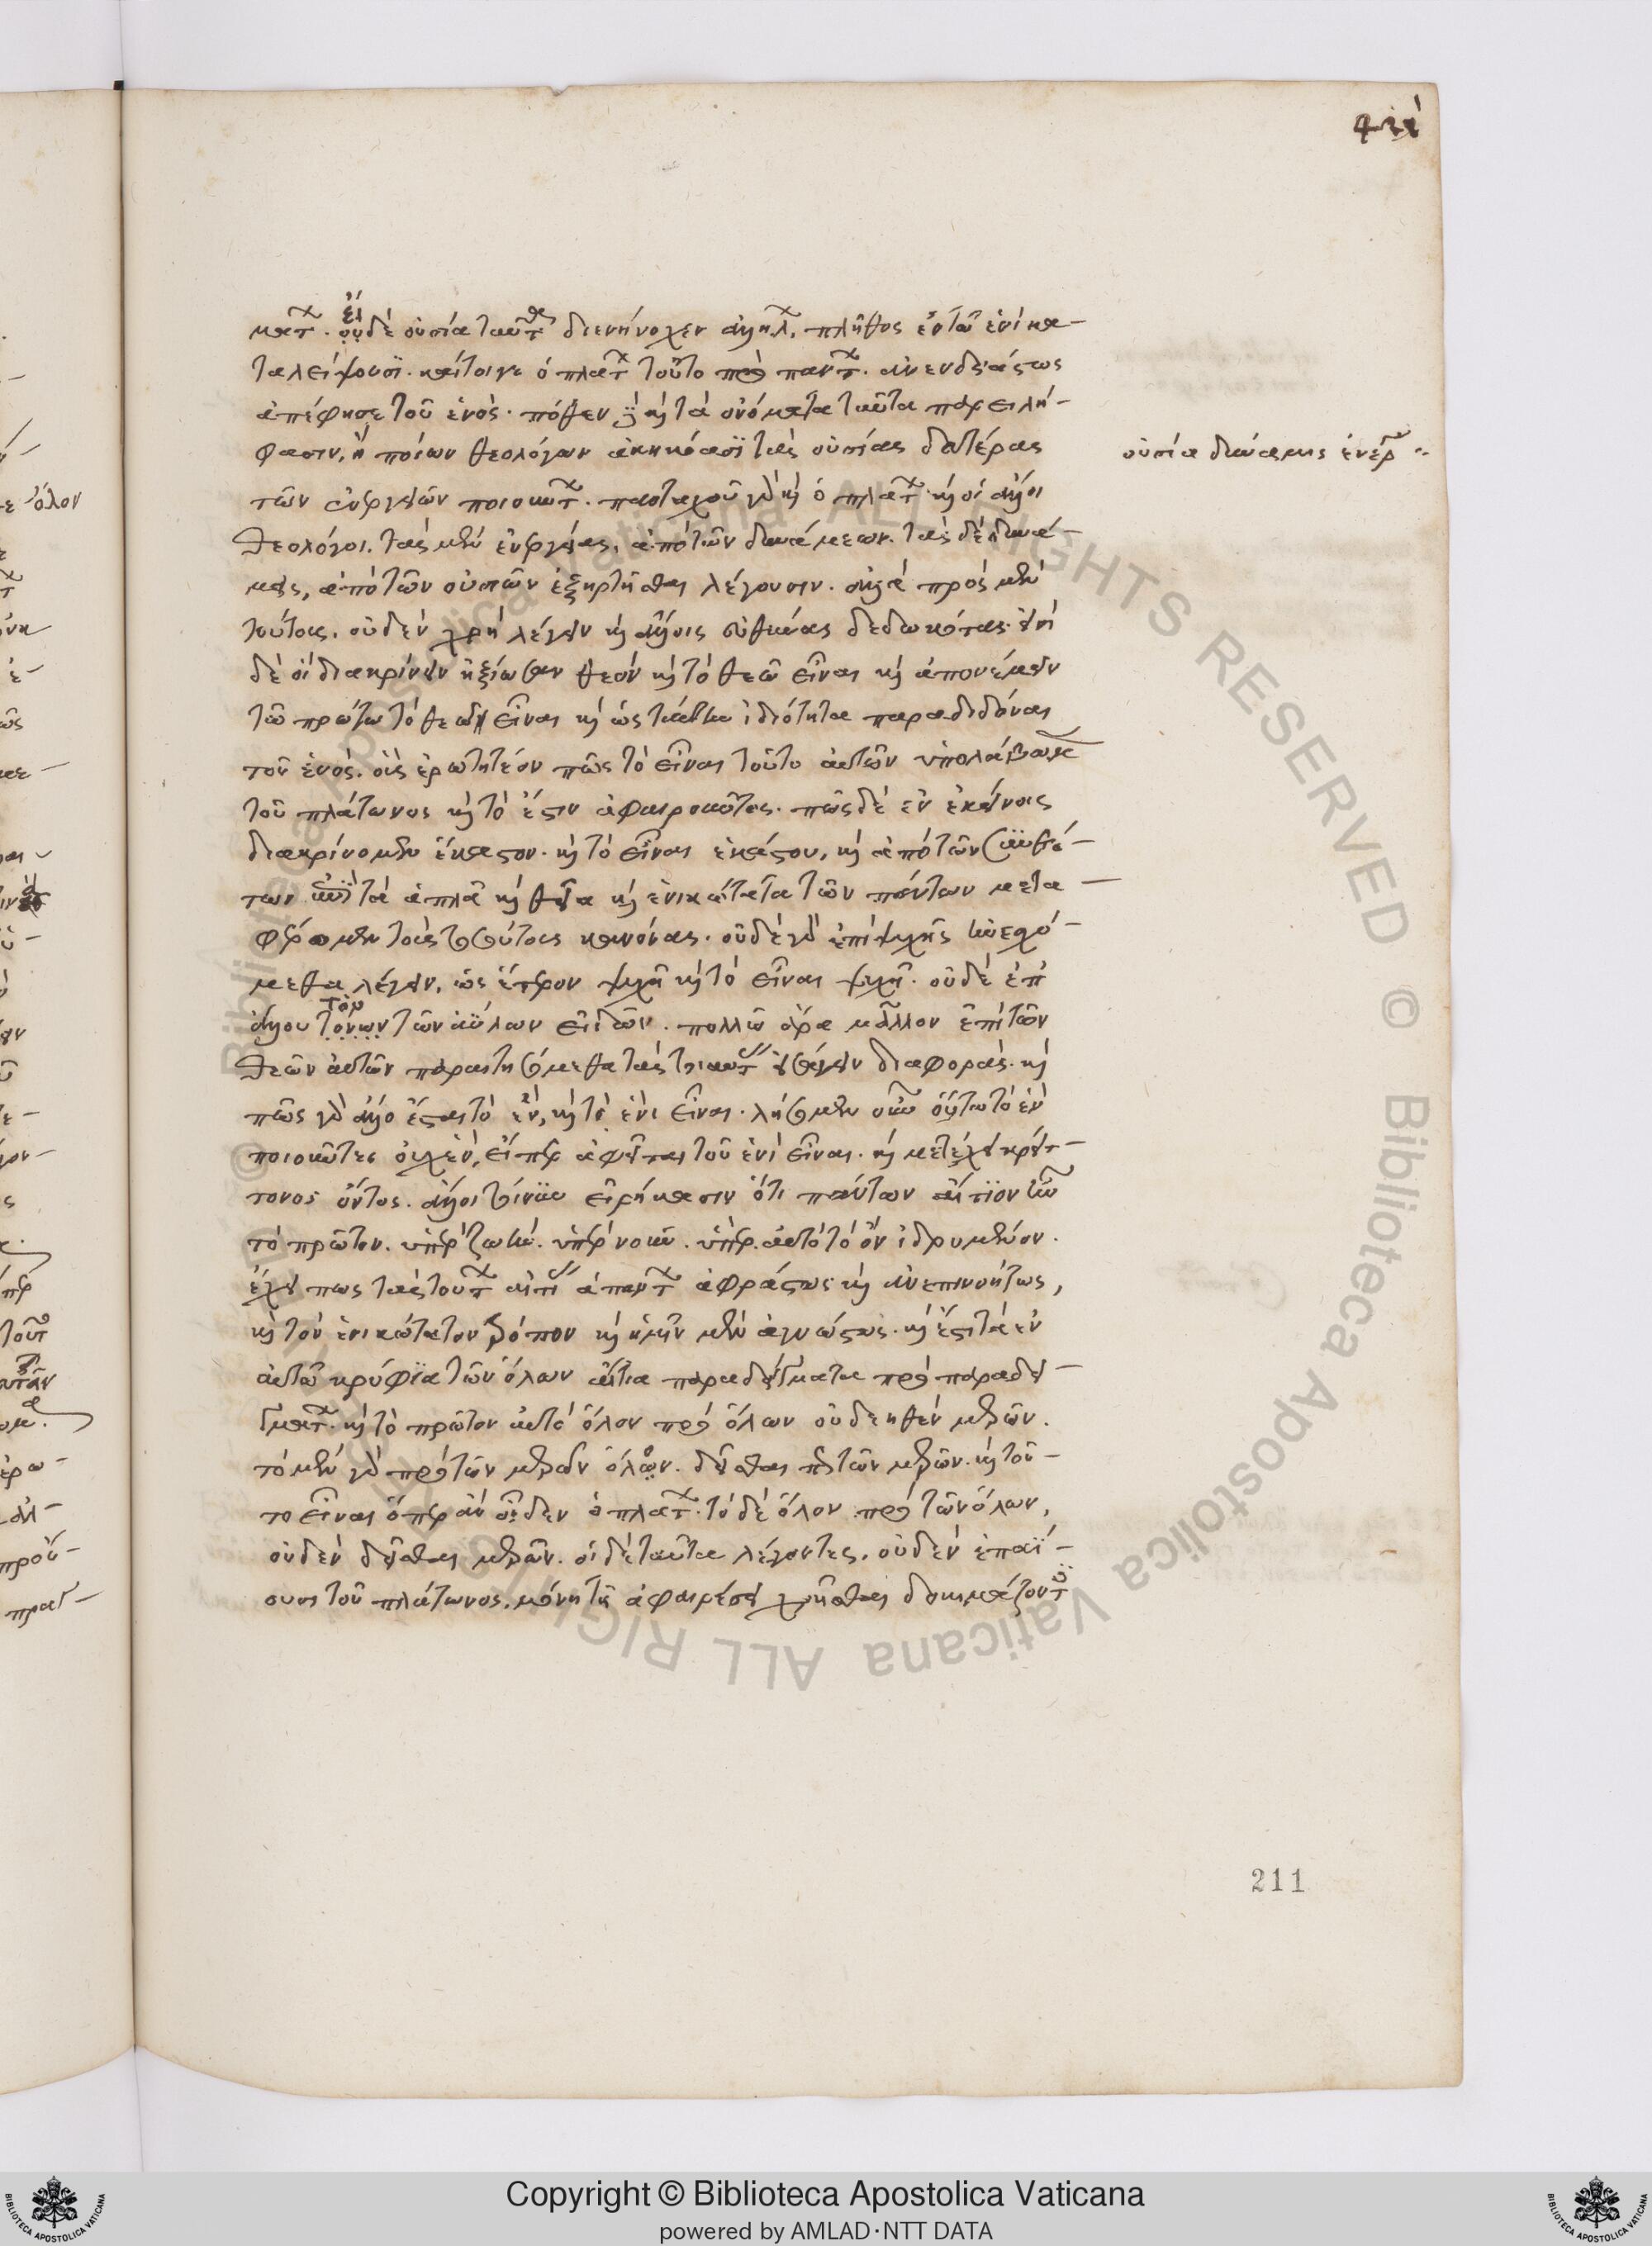 ματ. οὐδὲ εἰ οὐσία ταῦτα διενήνοχεν ἀλλήλ. πλῆθος ἐν τῶ ἑνὶ κα-
ταλείψουσι. καίτοιγε ὁ πλάτ τοῦτο πρὸ παντ. ἀνενδοιάστως
ἀπέφησε τοῦ ἑνός. πόθεν δὲ καὶ τὰ ὀνόματα ταῦτα παρειλή-
φασιν, ἢ ποίων θεολόγων ἀκηκόασι τὰς οὐσίας δευτέρας
οὐσία δύναμις ἐνέρ
τῶν ἐνεργειῶν ποιούντ. πανταχοῦ γὰρ καὶ ὁ πλάτ. καὶ οἱ ἄλλοι
θεολόγοι. τὰς μὲν ἐνεργείας, ἀπὸ τῶν δυνάμεων. τὰς δὲ δυνά-
μεις, ἀπὸ τῶν οὐσιῶν ἐξηρτῆσθαι λέγουσιν. ἀλλὰ πρὸς μὲν
τούτους, οὐδὲν χρὴ λέγειν καὶ ἄλλοις εὐθύνας δεδωκότας.
δὲ οἱ διακρίνειν ἠξίωσαν θεὸν καὶ τὸ θεῶ εἶναι καὶ ἀπονέμειν
τῶ πρώτω τὸ θεῶ εἶναι καὶ ὡς ταύτην ἰδιότητα παραδιδόναι
τοῦ ἑνός. οὓς ἐρωτητέον πῶς τὸ εἶναι τοῦτο αὐτῶν ὑπολάβωμεν
τοῦ πλάτωνος καὶ τὸ ἔστιν ἀφαιροῦντος. πῶς δὲ ἐν ἐκείνοις
διακρίνομεν ἕκαστον. καὶ τὸ εἶναι ἑκάστου, καὶ ἀπὸ τῶν συνθέ-
των ἐπὶ τὰ ἁπλᾶ καὶ θεῖα καὶ ἑνικώτατα τῶν πάντων μετα-
φέρομεν τοὺς τοιούτους κανόνας. οὐδὲ γὰρ ἐπὶ ψυχῆς ἠνεσχό-
μεθα λέγειν, ὡς ἕτερον ψυχὴ καὶ τὸ εἶναι ψυχῆ. οὐδὲ ἐπ
ἄλλου του τῶν ἀΰλων εἰδῶν. πολλῶ ἄρα μᾶλλον ἐπὶ τῶν
θεῶν αὐτῶν παραιτησόμεθα τὰς τοιαύτ εἰσάγειν διαφοράς. καὶ
πῶς γὰρ ἄλλο ἔσται τὸ ἕν, καὶ τὸ ἑνὶ εἶναι. λήσομεν οὖν οὕτω τὸ ἓν
ποιοῦντες οὐχ ἕν, εἴπερ ἀφεῖται τοῦ ἑνὶ εἶναι. καὶ μετέχει κρείτ-
τονος ὄντος. ἄλλοι τοίνυν εἰρήκασιν ὅτι πάντων αἴτιον ὂν
τὸ πρῶτον. ὑπὲρ ζωὴν. ὑπὲρ νοῦν. ὑπὲρ αὐτὸ τὸ ὂν ἱδρυμένον.
ἔχει πως τὰς τούτ αἰτί ἁπάντ ἀφράστως καὶ ἀνεπινοήτως,
καὶ τὸν ἑνικώτατον τρόπον καὶ ἡμῖν μὲν ἀγνώστως. καὶ ἔστι τὰ ἐν
αὐτῶ κρύφια τῶν ὅλων αἴτια παραδείγματα πρὸ παραδει-
γμάτ. καὶ τὸ πρῶτον αὐτὸ ὅλον πρὸ ὅλων οὐ δεηθὲν μερῶν.
τὸ μὲν γὰρ πρὸ τῶν μερῶν ὅλον. δεῖσθαι πῃ τῶν μερῶν. καὶ τοῦ-
το εἶναι ὅπερ ἀνεῖλεν ὁ πλάτ. τὸ δὲ ὅλον πρὸ τῶν ὅλων,
οὐδὲν δεῖσθαι μερῶν. οἱ δὲ ταῦτα λέγοντες, οὐδὲν ἐπαΐ-
ουσι τοῦ πλάτωνος, μόνη τῆ ἀφαιρέσει χρῆσθαι δοκιμάζοντ
211
Copyright © Biblioteca Apostolica Vaticana
powered by AMLAD·NTT DATA
© Biblioteca Apostolica Vaticana ALL RIGHTS RESERVED © Biblioteca Apostolica Vaticana ALL RIGHTS RESERVED